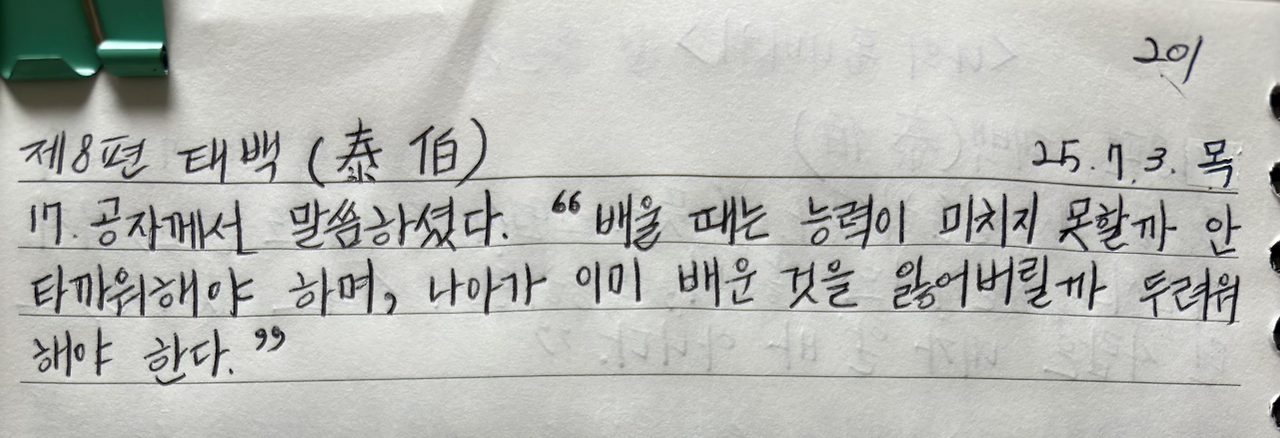 201
제8편 태백(泰伯) 25.7.3. 목
17. 공자께서 말씀하셨다. “배울 때는 능력이 미치지 못할까 안
타까워해야 하며, 나아가 이미 배운 것을 잃어버릴까 두려워
해야 한다.”